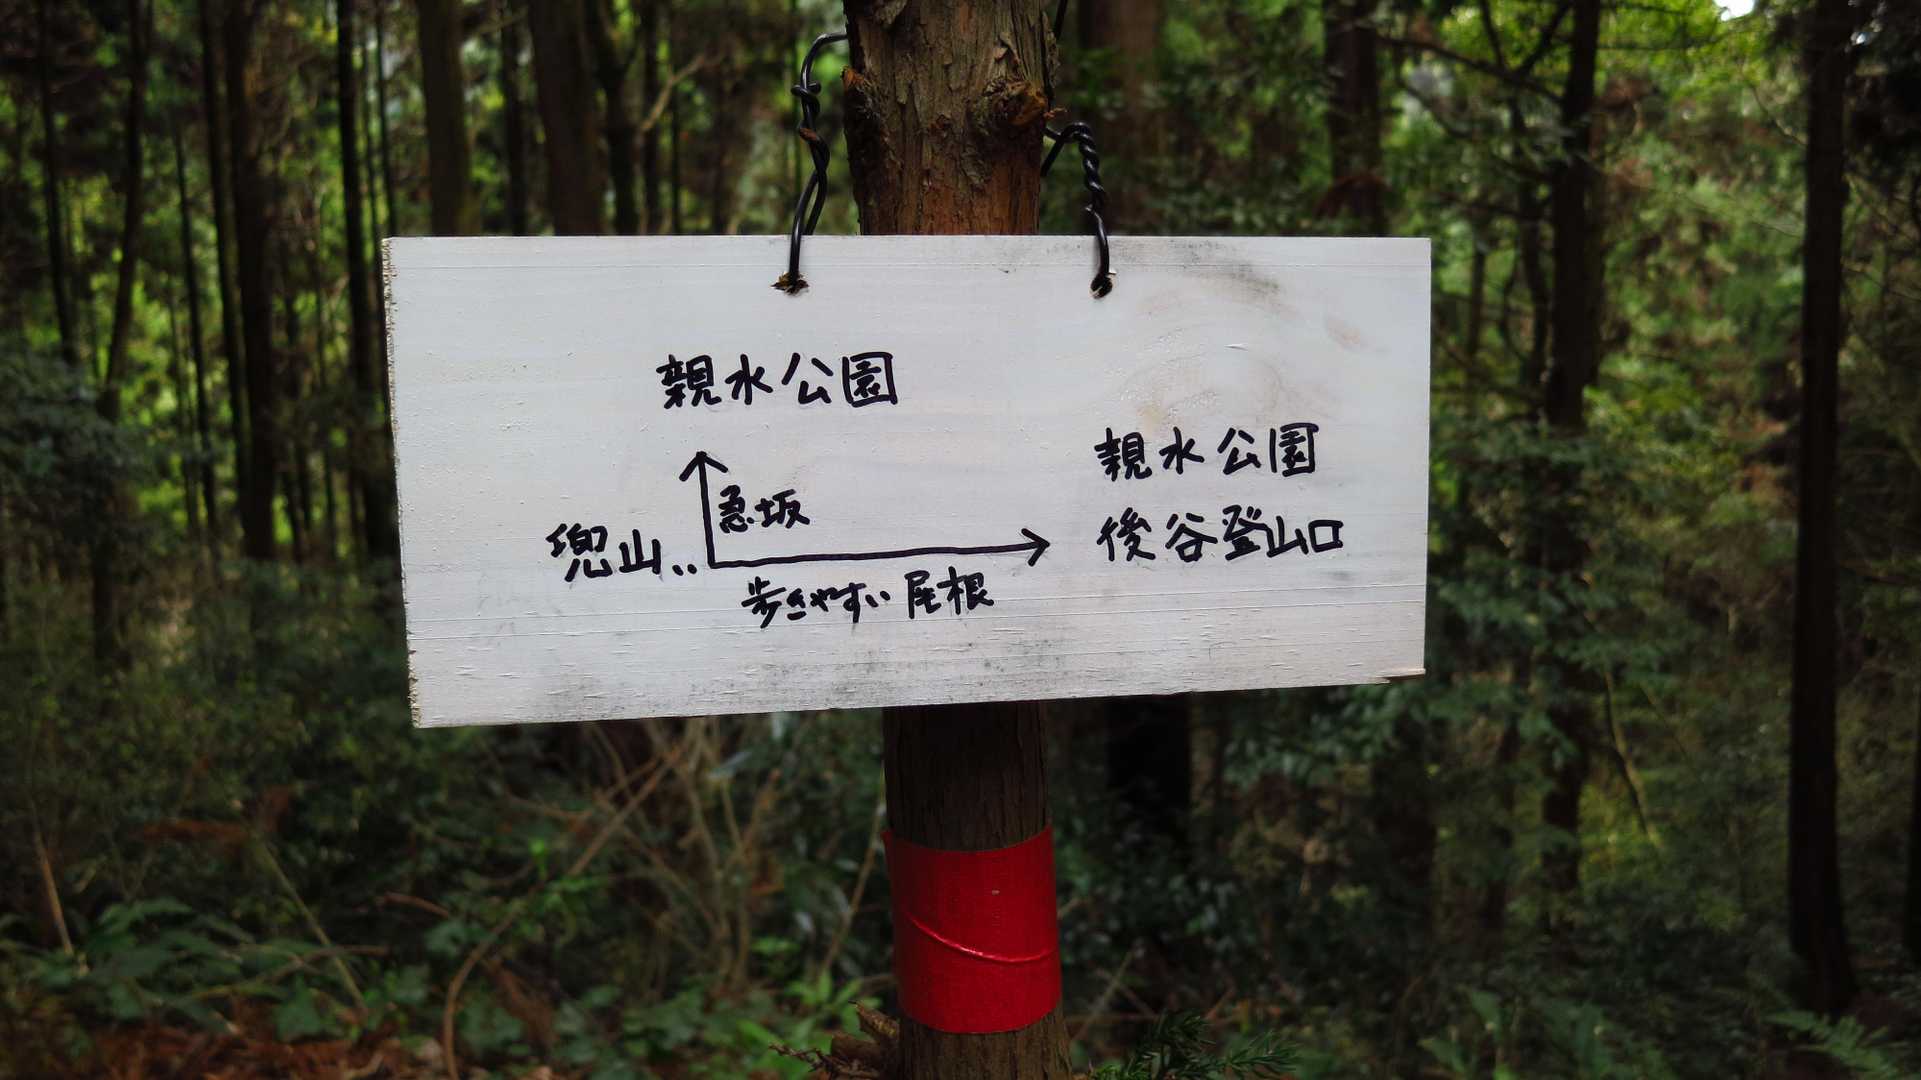 親水公園
親水公園
急坂
兜山..
後谷登山口
歩きやすい尾根